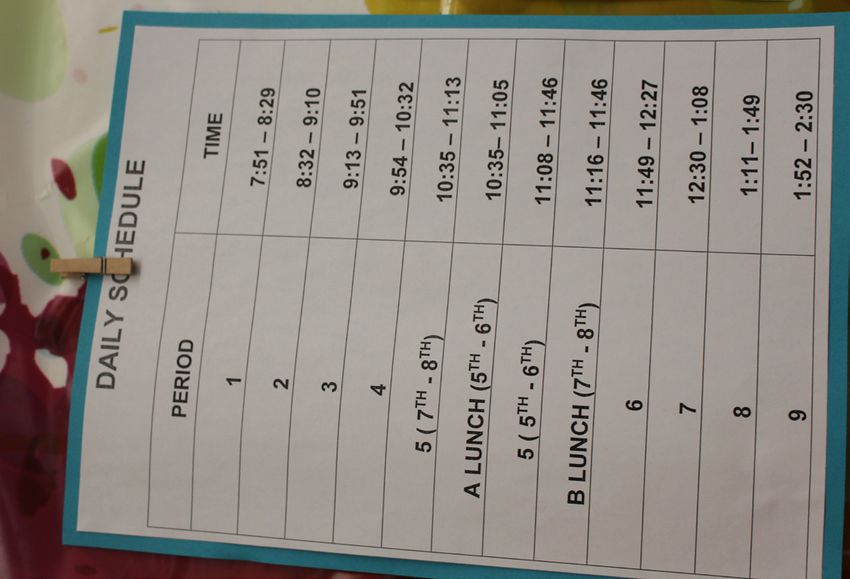 DAILY SCHEDULE
PERIOD TIME
1 7:51 – 8:29
2 8:32 – 9:10
3 9:13 – 9:51
4 9:54 – 10:32
5 ( 7TH - 8TH) 10:35 – 11:13
A LUNCH (5TH - 6TH) 10:35– 11:05
5 ( 5TH - 6TH) 11:08 – 11:46
B LUNCH (7TH - 8TH) 11:16 – 11:46
6 11:49 – 12:27
7 12:30 – 1:08
8 1:11– 1:49
9 1:52 – 2:30